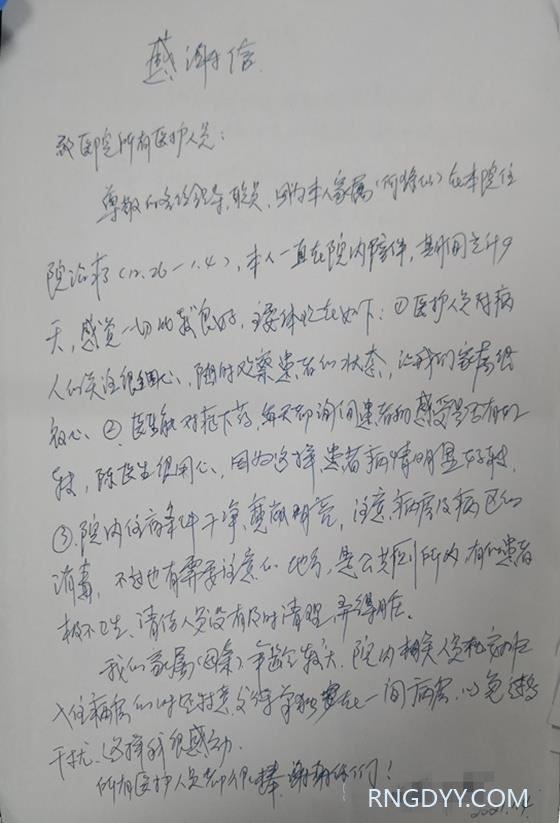 感谢信
致医院所有医护人员:
尊敬的各位领导、职员,因为本人家属(何)在本院住
院治疗(12.26-1.4),本人一直在院内陪伴,期间共计9
天,感觉一切都良好,主要体现在如下:①医护人员对病
人的关注很细心,随时观察患者的状态,让我们家属很
放心。②医生能对症下药,每天都询问患者的感受是否有好
转,陈医生很用心,因为这样患者病情明显好转。
③院内住病条件干净,宽敞明亮,注意病房及病区的
消毒,不过也有需要注意的地方,是公共厕所内,有的患者
极不卫生,清洁人员没有及时清理,弄得脏。
我们家属(母亲)年龄较大,院内相关人员在安排
入住病房的时还特意安排单独在一间病房,以免
干扰,这样我很感动。
所有医护人员都很棒,谢谢你们!
RNGDYY.COM